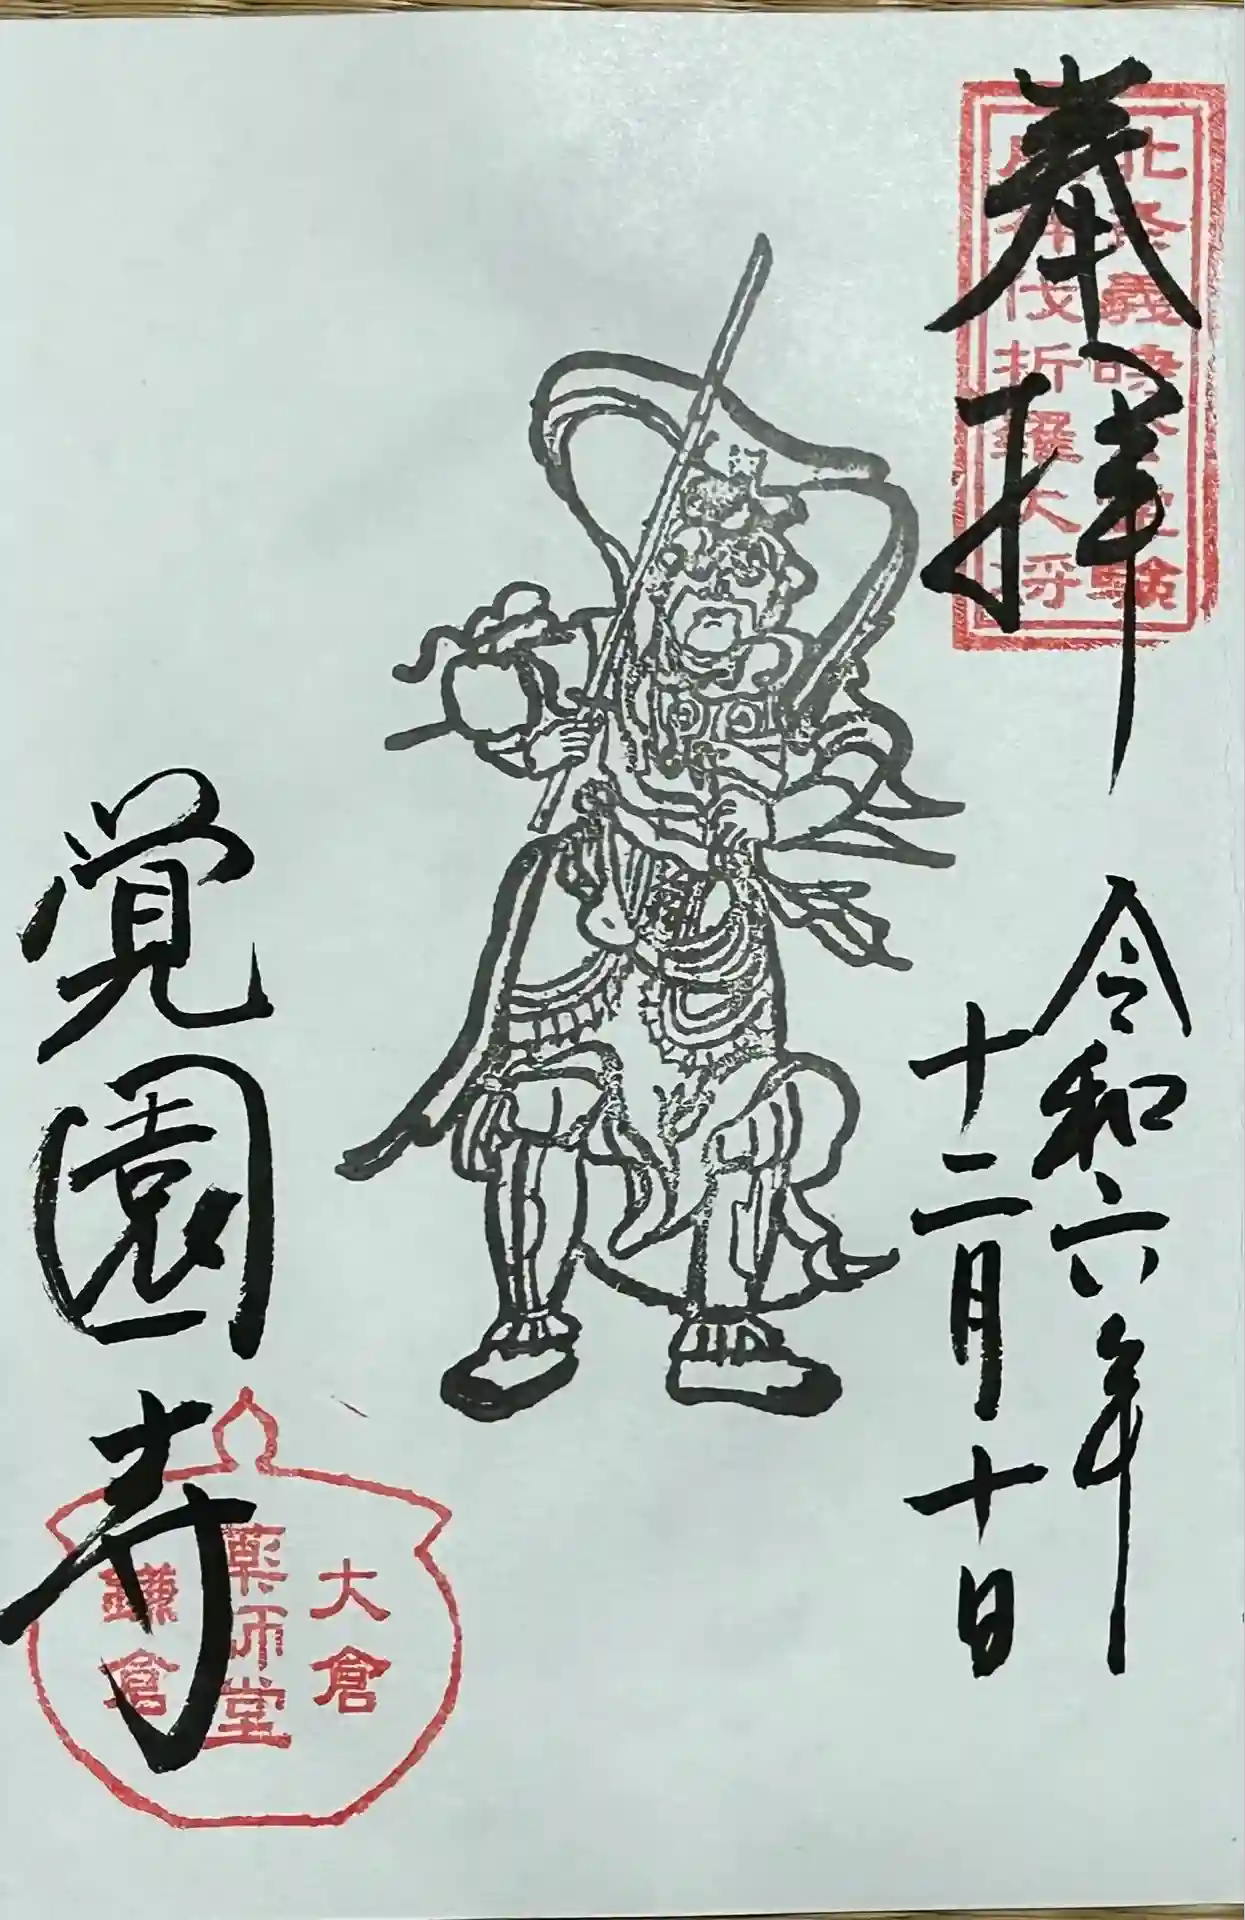 奉拝
北条義時公霊験
戌神伐折羅大将
令和六年
十二月十日
覚園寺
大倉
薬師堂
鎌倉